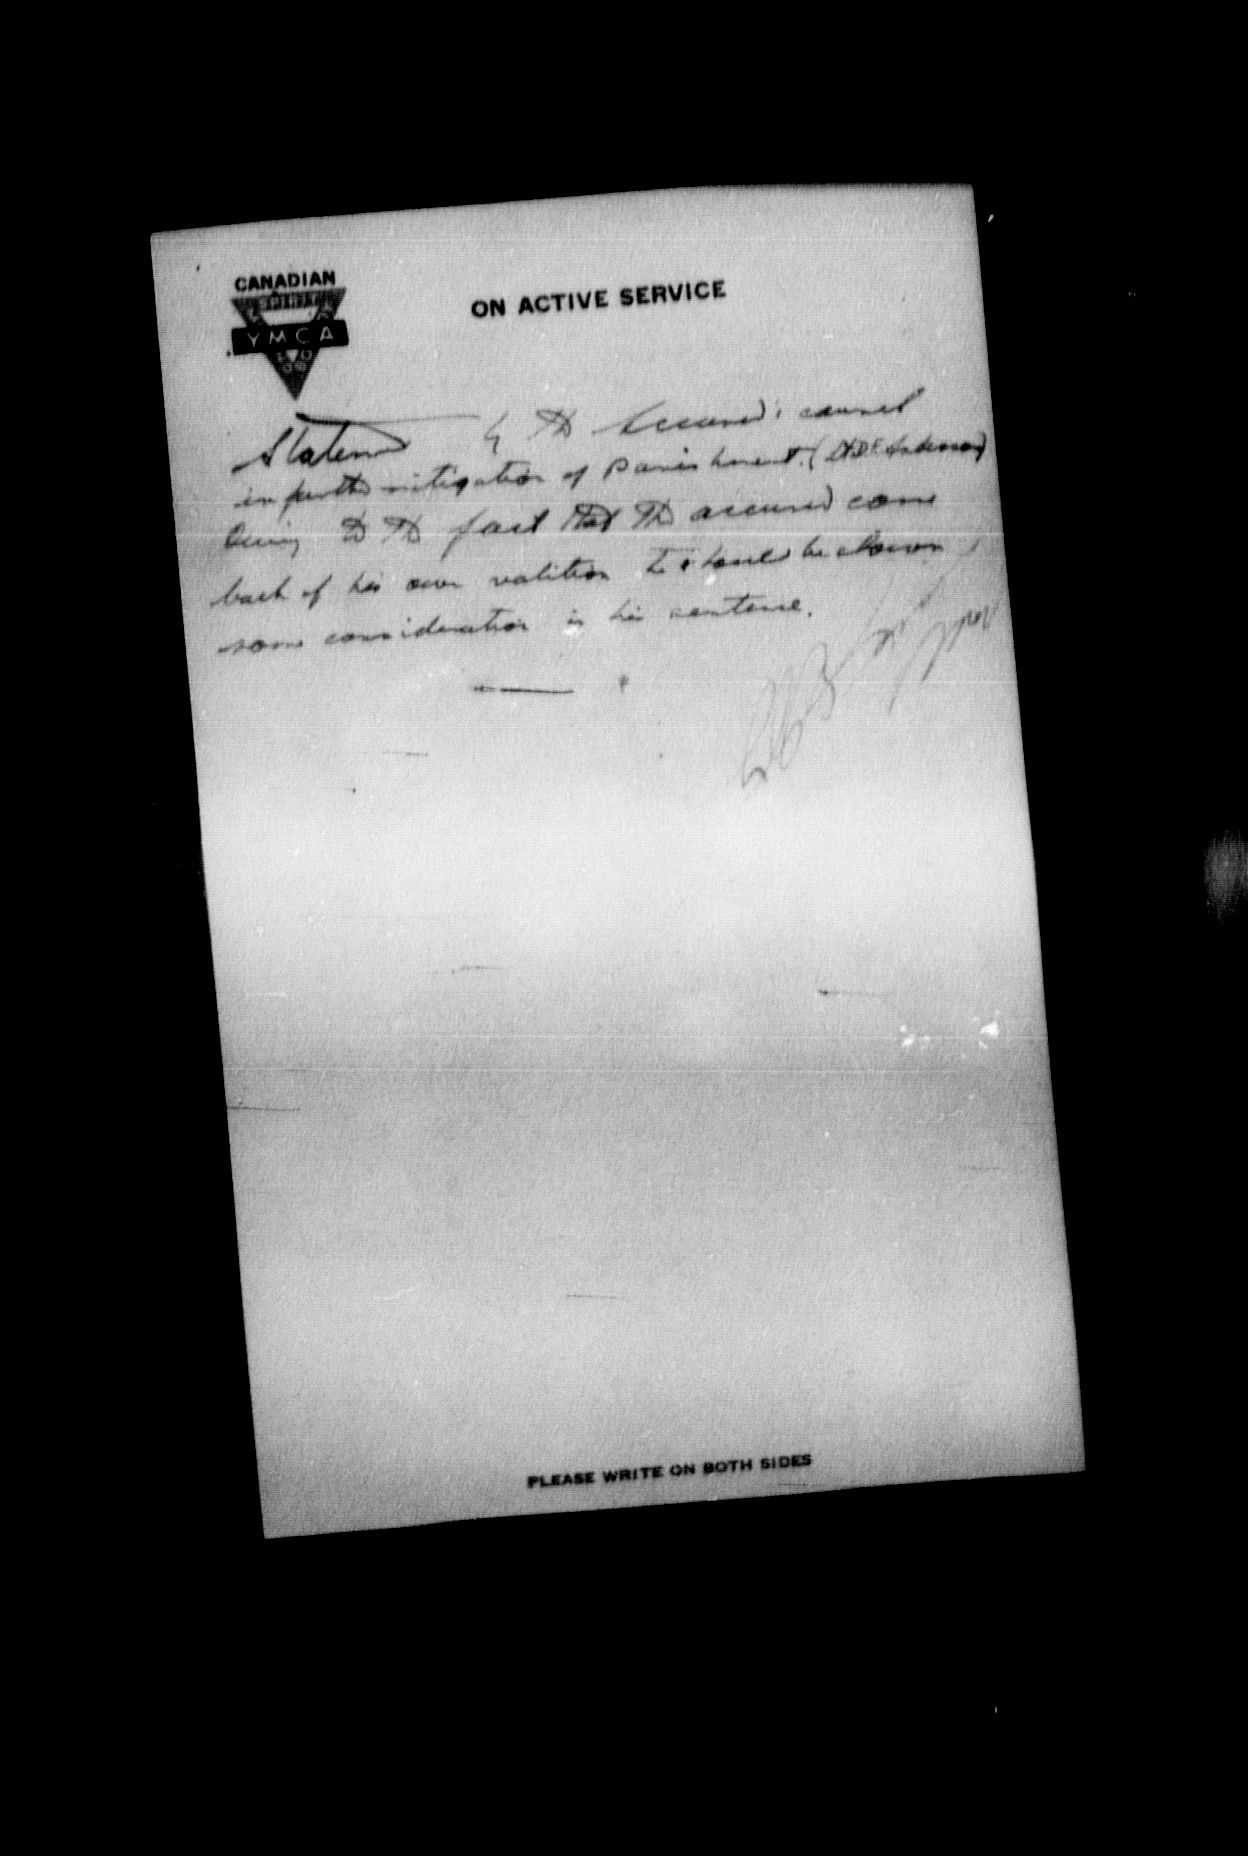 CANADIAN
YMCA
ON ACTIVE SERVICE
Statement by the Accused's counsel
in further mitigation of punishment. (Lt D F Anderson)
Owing to the fact that the accused came
back of his own volition he should be shown
some consideration in his sentence.
PLEASE WRITE ON BOTH SIDES